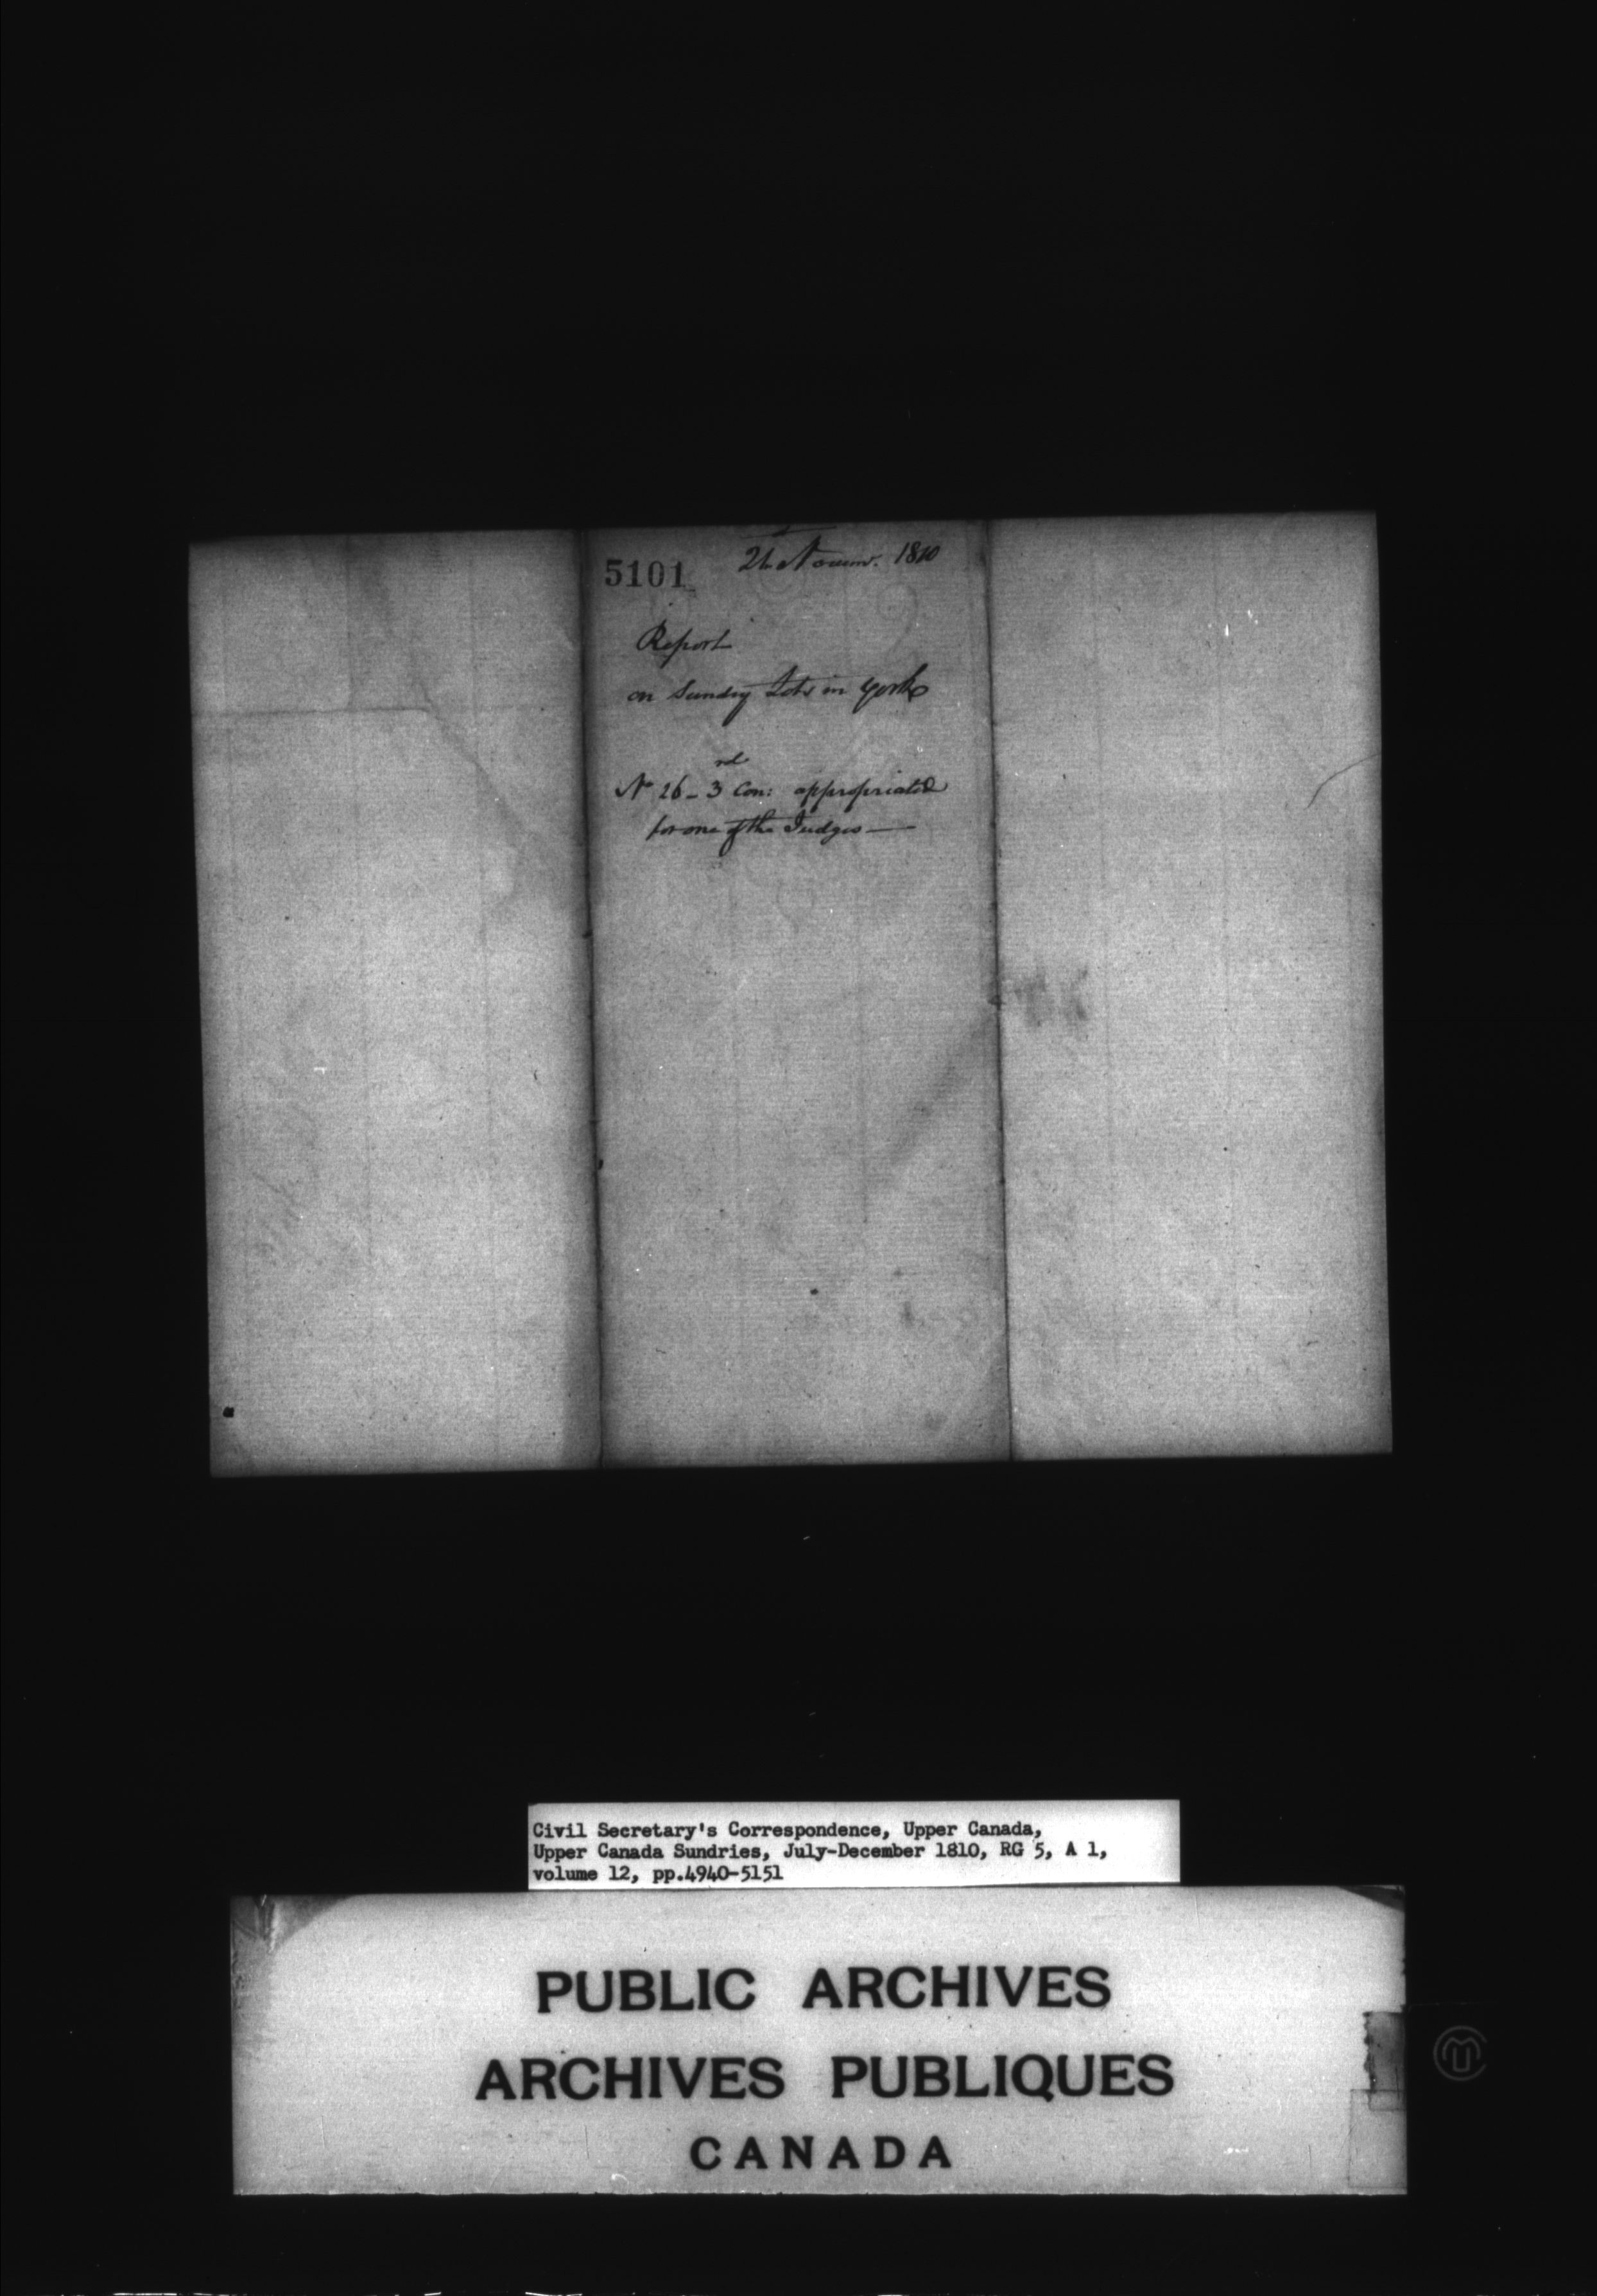 5101
Novemr. 1810
Report
on Sundry Lots in York
No 26 - 3rd Con: appropriated
for one of the Judges —
Civil Secretary's Correspondence, Upper Canada,
Upper Canada Sundries, July-December 1810, RG 5, A 1,
volume 12, pp.4940-5151
PUBLIC ARCHIVES
ARCHIVES PUBLIQUES
CANADA